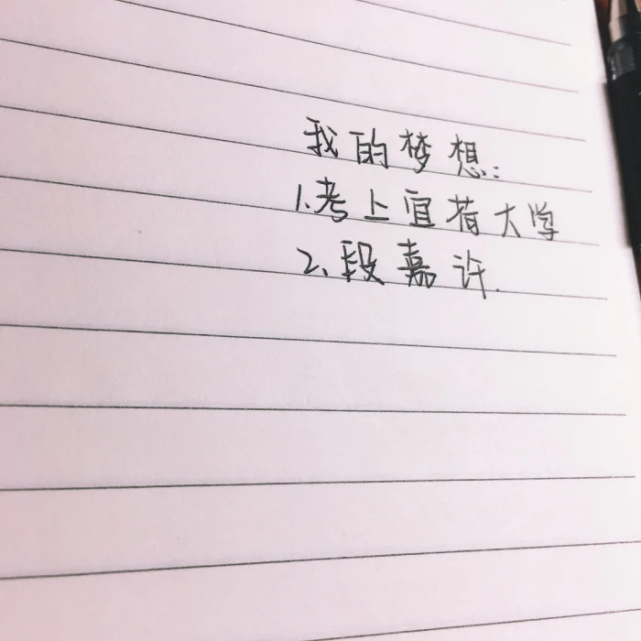 我的梦想:
1.考上宜荷大学
2.段嘉许.